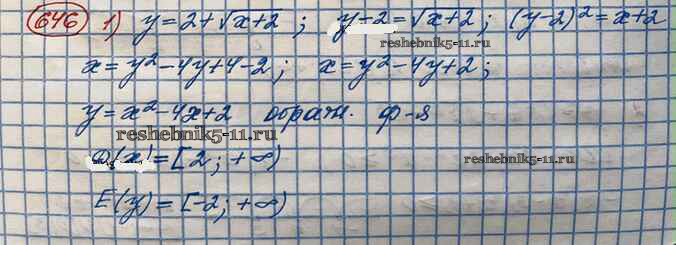 646 1) y = 2 + √x+2 ; y - 2 = √x+2 ; (y-2)² = x+2
reshebnik5-11.ru
x = y² - 4y + 4 - 2 ; x = y² - 4y + 2 ;
y = x² - 4x + 2 обратн. ф-я
reshebnik5-11.ru
D(x) = [2 ; +∞)
reshebnik5-11.ru
E(y) = [-2 ; +∞)